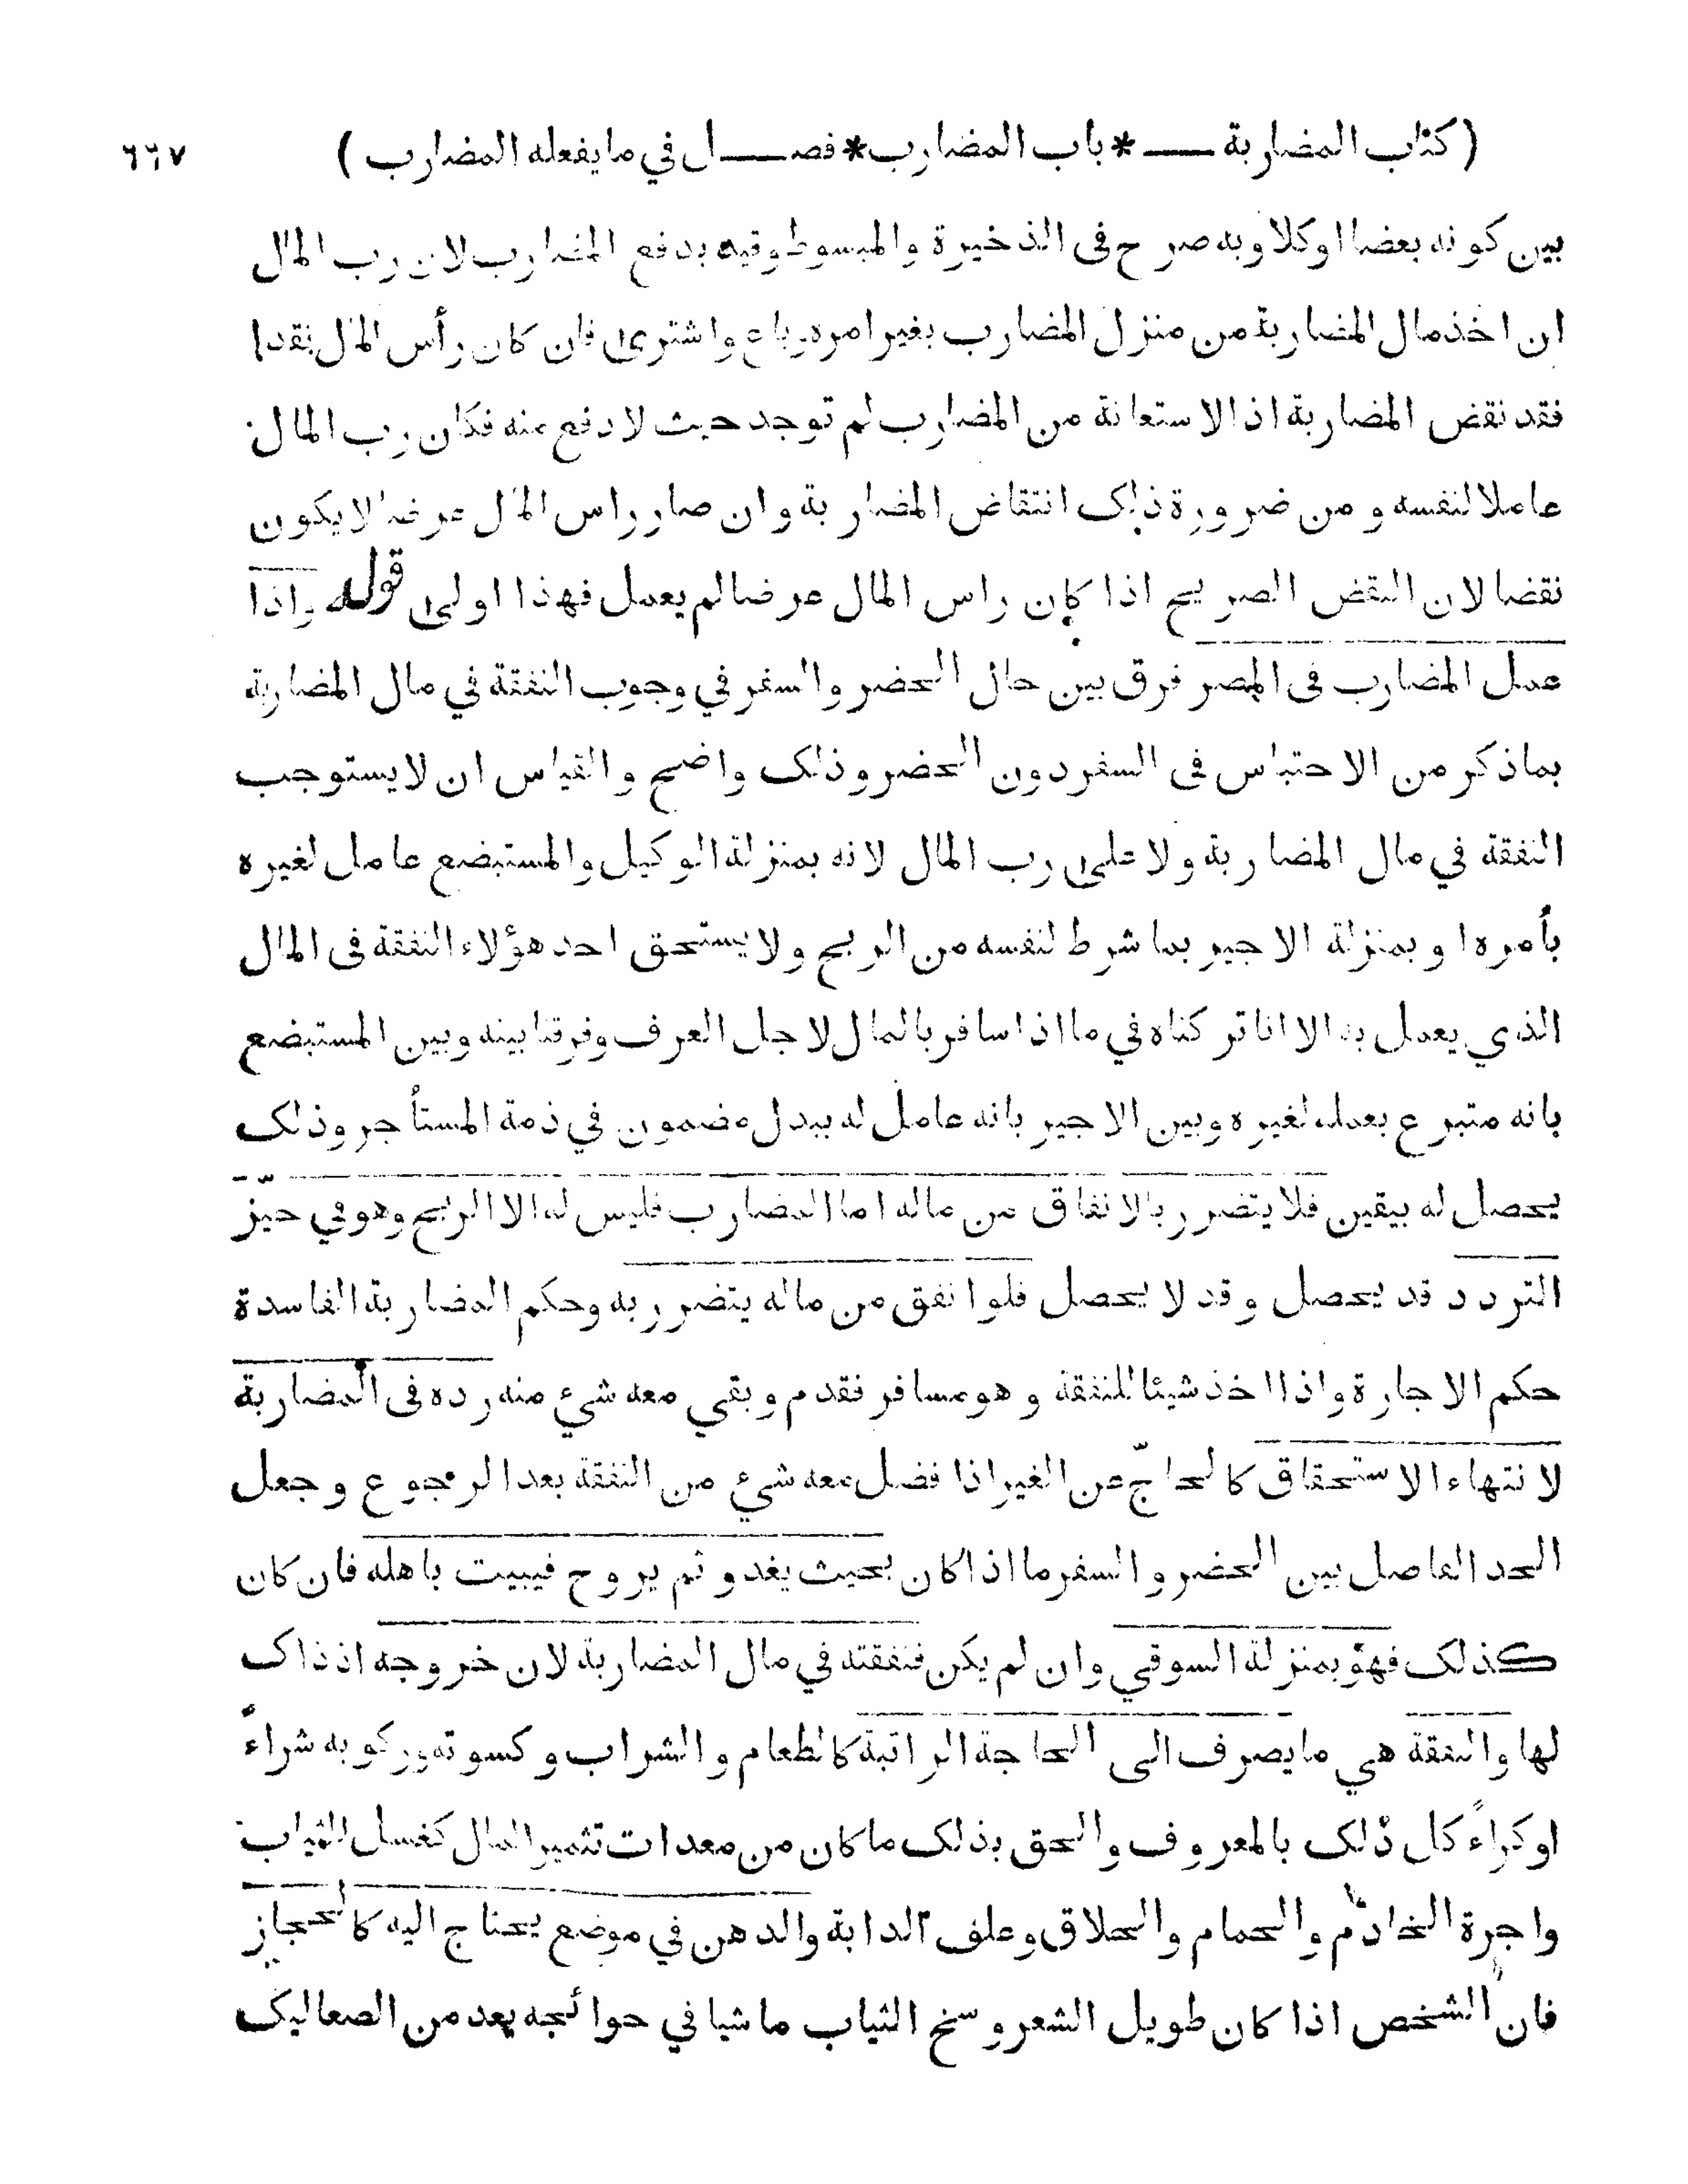 (كتاب المضاربة — * باب المضارب * فصـل في ما يفعله المضارب) ٦٦٧
بين كونه بعضا او كلا وبه صرح فى الذخيرة والمبسوط وقيد بدفع المضارب لان رب المال
ان اخذ مال المضاربة من منزل المضارب بغير امره وباع واشترى فان كان رأس المال نقدا
فقد نقض المضاربة اذ الاستعانة من المضارب لم توجد حيث لا دفع منه فكان رب المال
عاملا لنفسه و من ضرورة ذلك انتقاض المضاربة وان صار راس المال عرضا لا يكون
نقضا لان النقض الصريح اذا كان راس المال عرضا لم يعمل فهذا اولى قوله واذا
عمل المضارب فى المصر فرق بين حال الحضر والسفر في وجوب النفقة في مال المضاربة
بما ذكر من الاحتباس فى السفر دون الحضر وذلك واضح والقياس ان لا يستوجب
النفقة في مال المضاربة ولا على رب المال لانه بمنزلة الوكيل والمستبضع عامل لغيره
بأمره او بمنزلة الاجير بما شرط لنفسه من الربح ولا يستحق احد هؤلاء النفقة فى المال
الذي يعمل به الا انا تركناه في ما اذا سافر بالمال لاجل العرف وفرقنا بينه وبين المستبضع
بانه متبرع بعمله لغيره وبين الاجير بانه عامل له ببدل مضمون في ذمة المستأجر وذلك
يحصل له بيقين فلا يتضرر بالانفاق من ماله اما المضارب فليس له الا الربح وهو في حيّز
التردد قد يحصل وقد لا يحصل فلو انفق من ماله يتضرر به وحكم المضاربة الفاسدة
حكم الاجارة واذا اخذ شيئا للنفقة وهو مسافر فقدم وبقي معه شيء منه رده فى المضاربة
لانتهاء الاستحقاق كالحاجّ عن الغير اذا فضل معه شيء من النفقة بعد الرجوع وجعل
الحد الفاصل بين الحضر والسفر ما اذا كان بحيث يغدو ثم يروح فيبيت باهله فان كان
كذلك فهو بمنزلة السوقي وان لم يكن فنفقته في مال المضاربة لان خروجه اذ ذاك
لها والنفقة هي ما يصرف الى الحاجة الراتبة كالطعام والشراب وكسوته وركوبه شراءً
او كراءً كل ذلك بالمعروف والحق بذلك ما كان من معدات تثمير المال كغسل الثياب
واجرة الخادم والحمام والحلاق وعلف الدابة والدهن في موضع يحتاج اليه كالحجاز
فان الشخص اذا كان طويل الشعر وسخ الثياب ماشيا في حوائجه يعد من الصعاليك